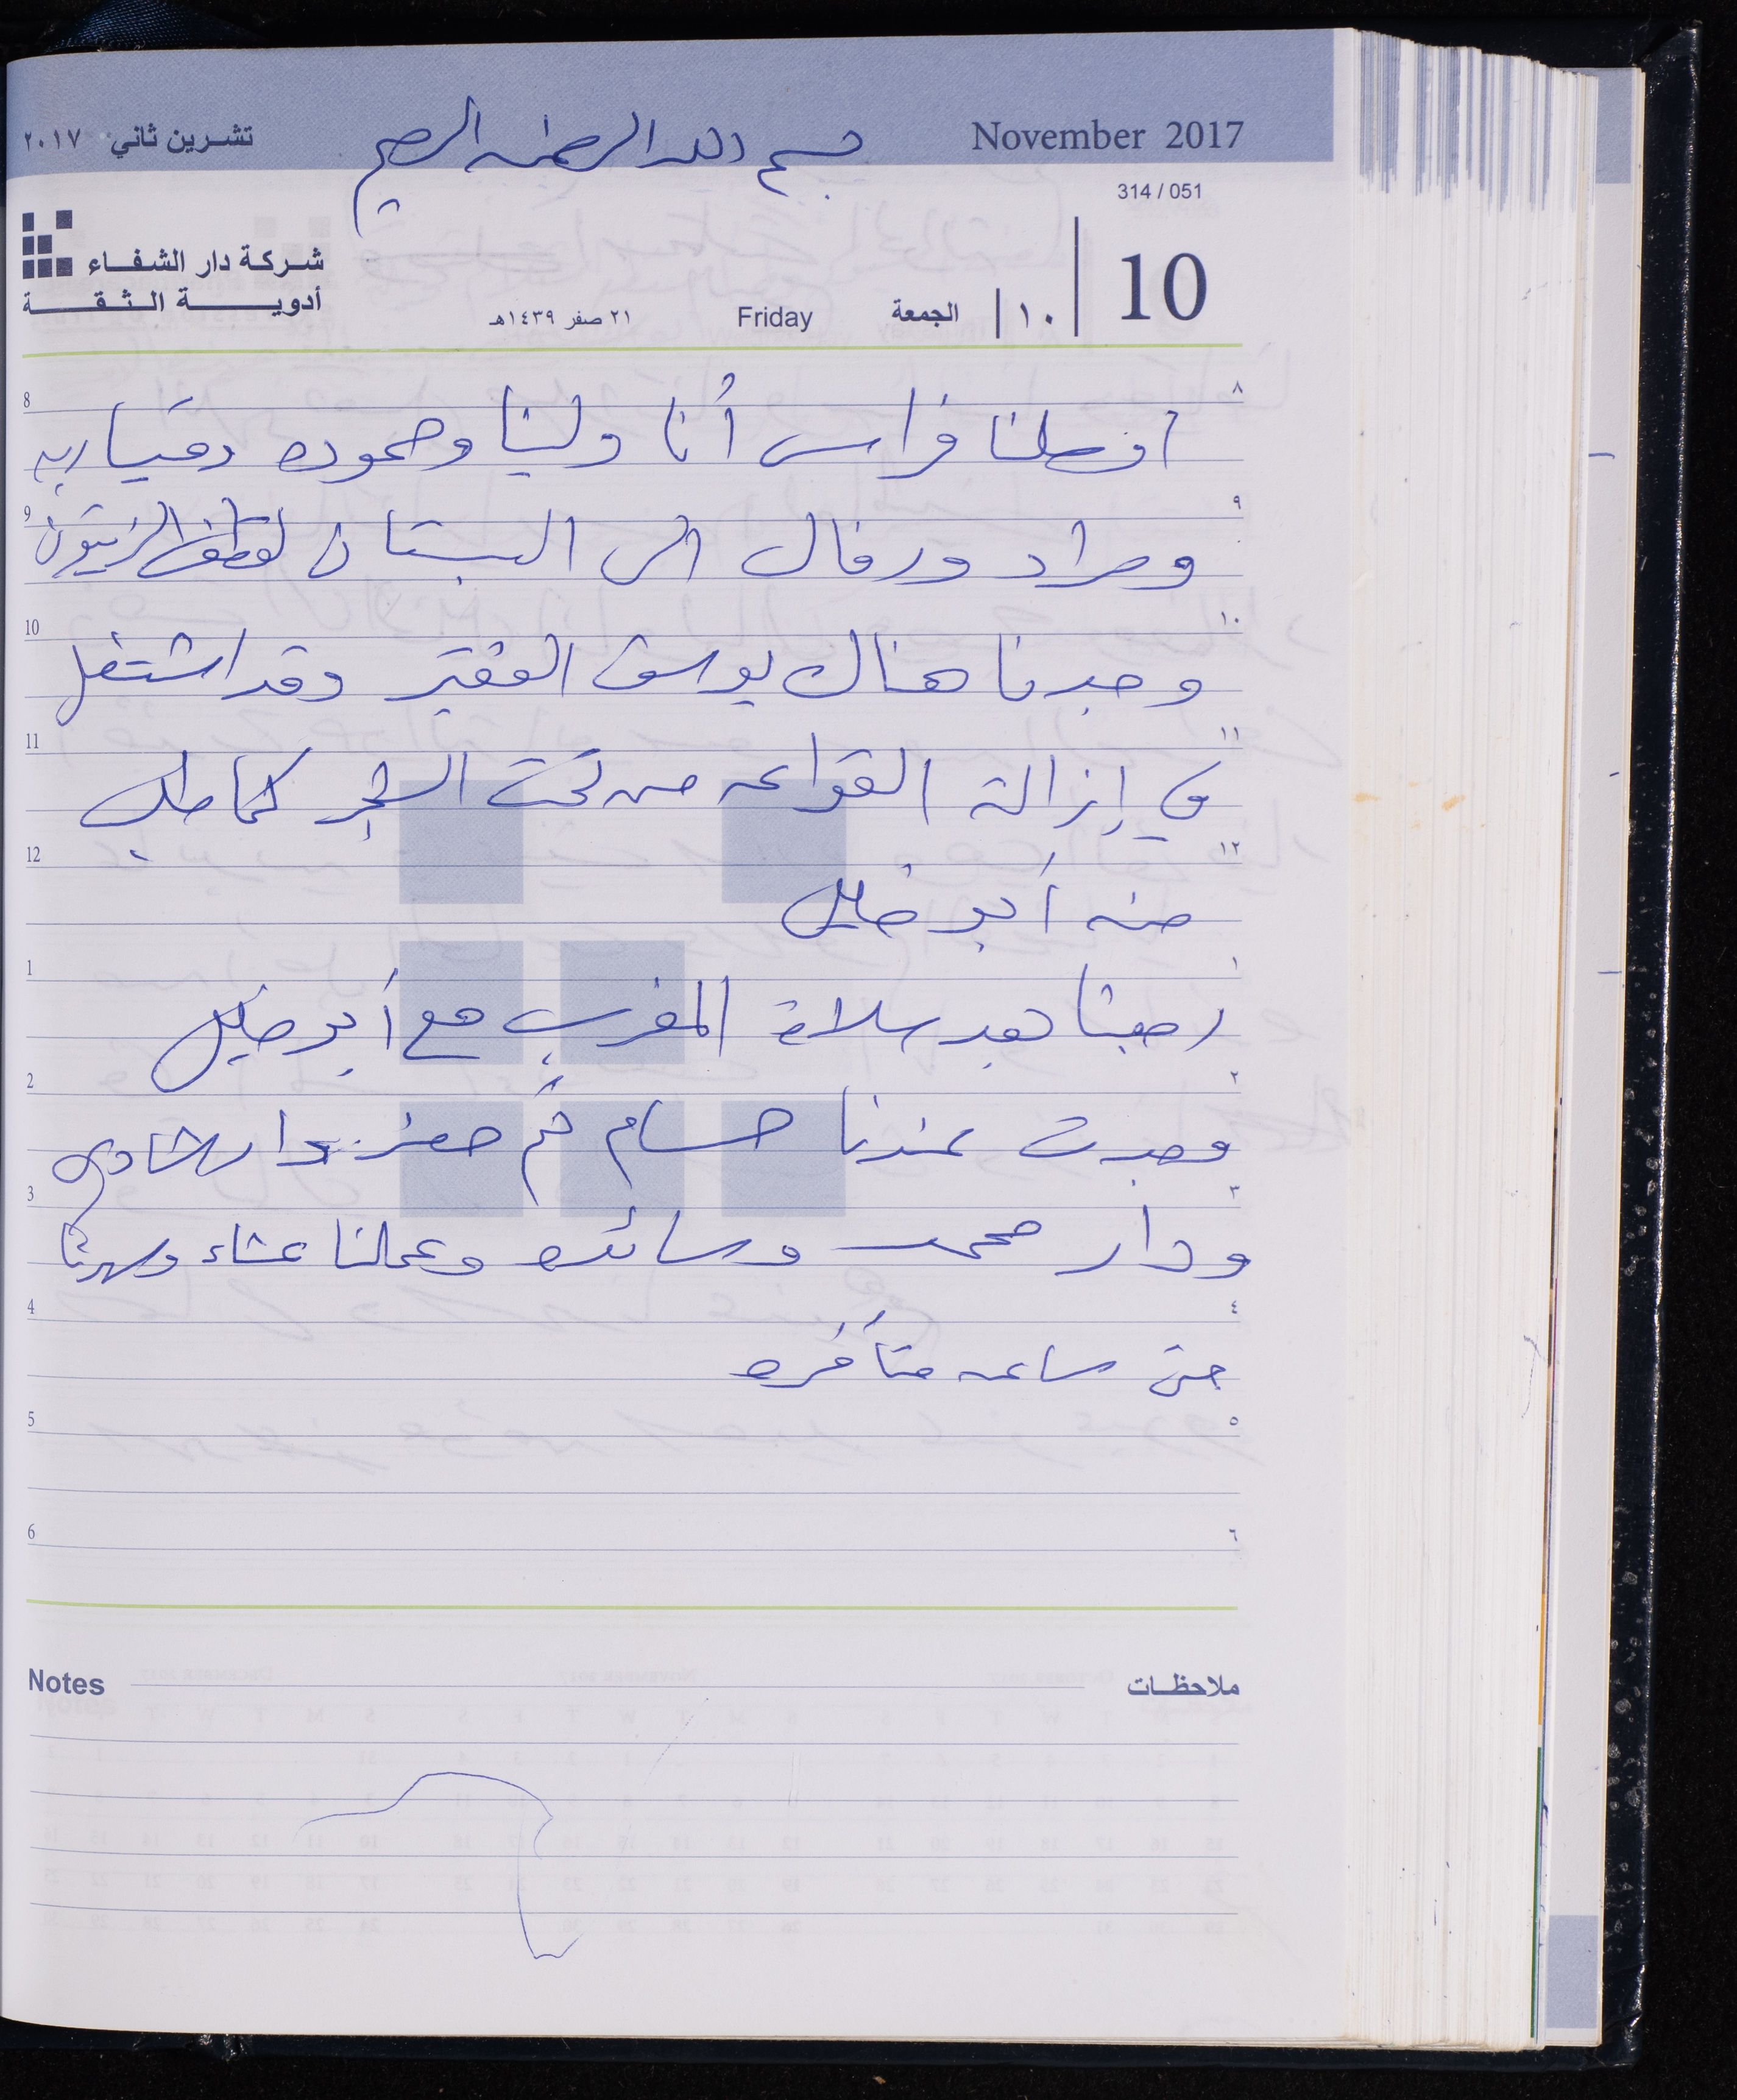 تشرين ثاني ٢٠١٧ بسم الله الرحمن الرحيم November 2017
314 / 051
شركة دار الشفاء
أدوية الثقة
٢١ صفر ١٤٣٩هـ Friday الجمعة ١٠ 10
8 ٨
اوصلنا فراس أنا ولينا وحموده
9 ٩
ومراد ورفال الى البستان لقطف الزيتون
10 ١٠
وجدنا هناك يوسف الفقير وقد اشتغل
11 ١١
في إزالة القواعه من تحت الشجر كما طلب
12 ١٢
منه أبو خليل
1 ١
رجعنا بعد سلاة المغرب مع أبو خليل
2 ٢
وجدت عندنا حسام ثم حضر دار شادي
3 ٣
ودار محمد وسائده وعملنا عشاء وسهرنا
4 ٤
حتى ساعه متأخره
5 ٥
6 ٦
Notes ملاحظات